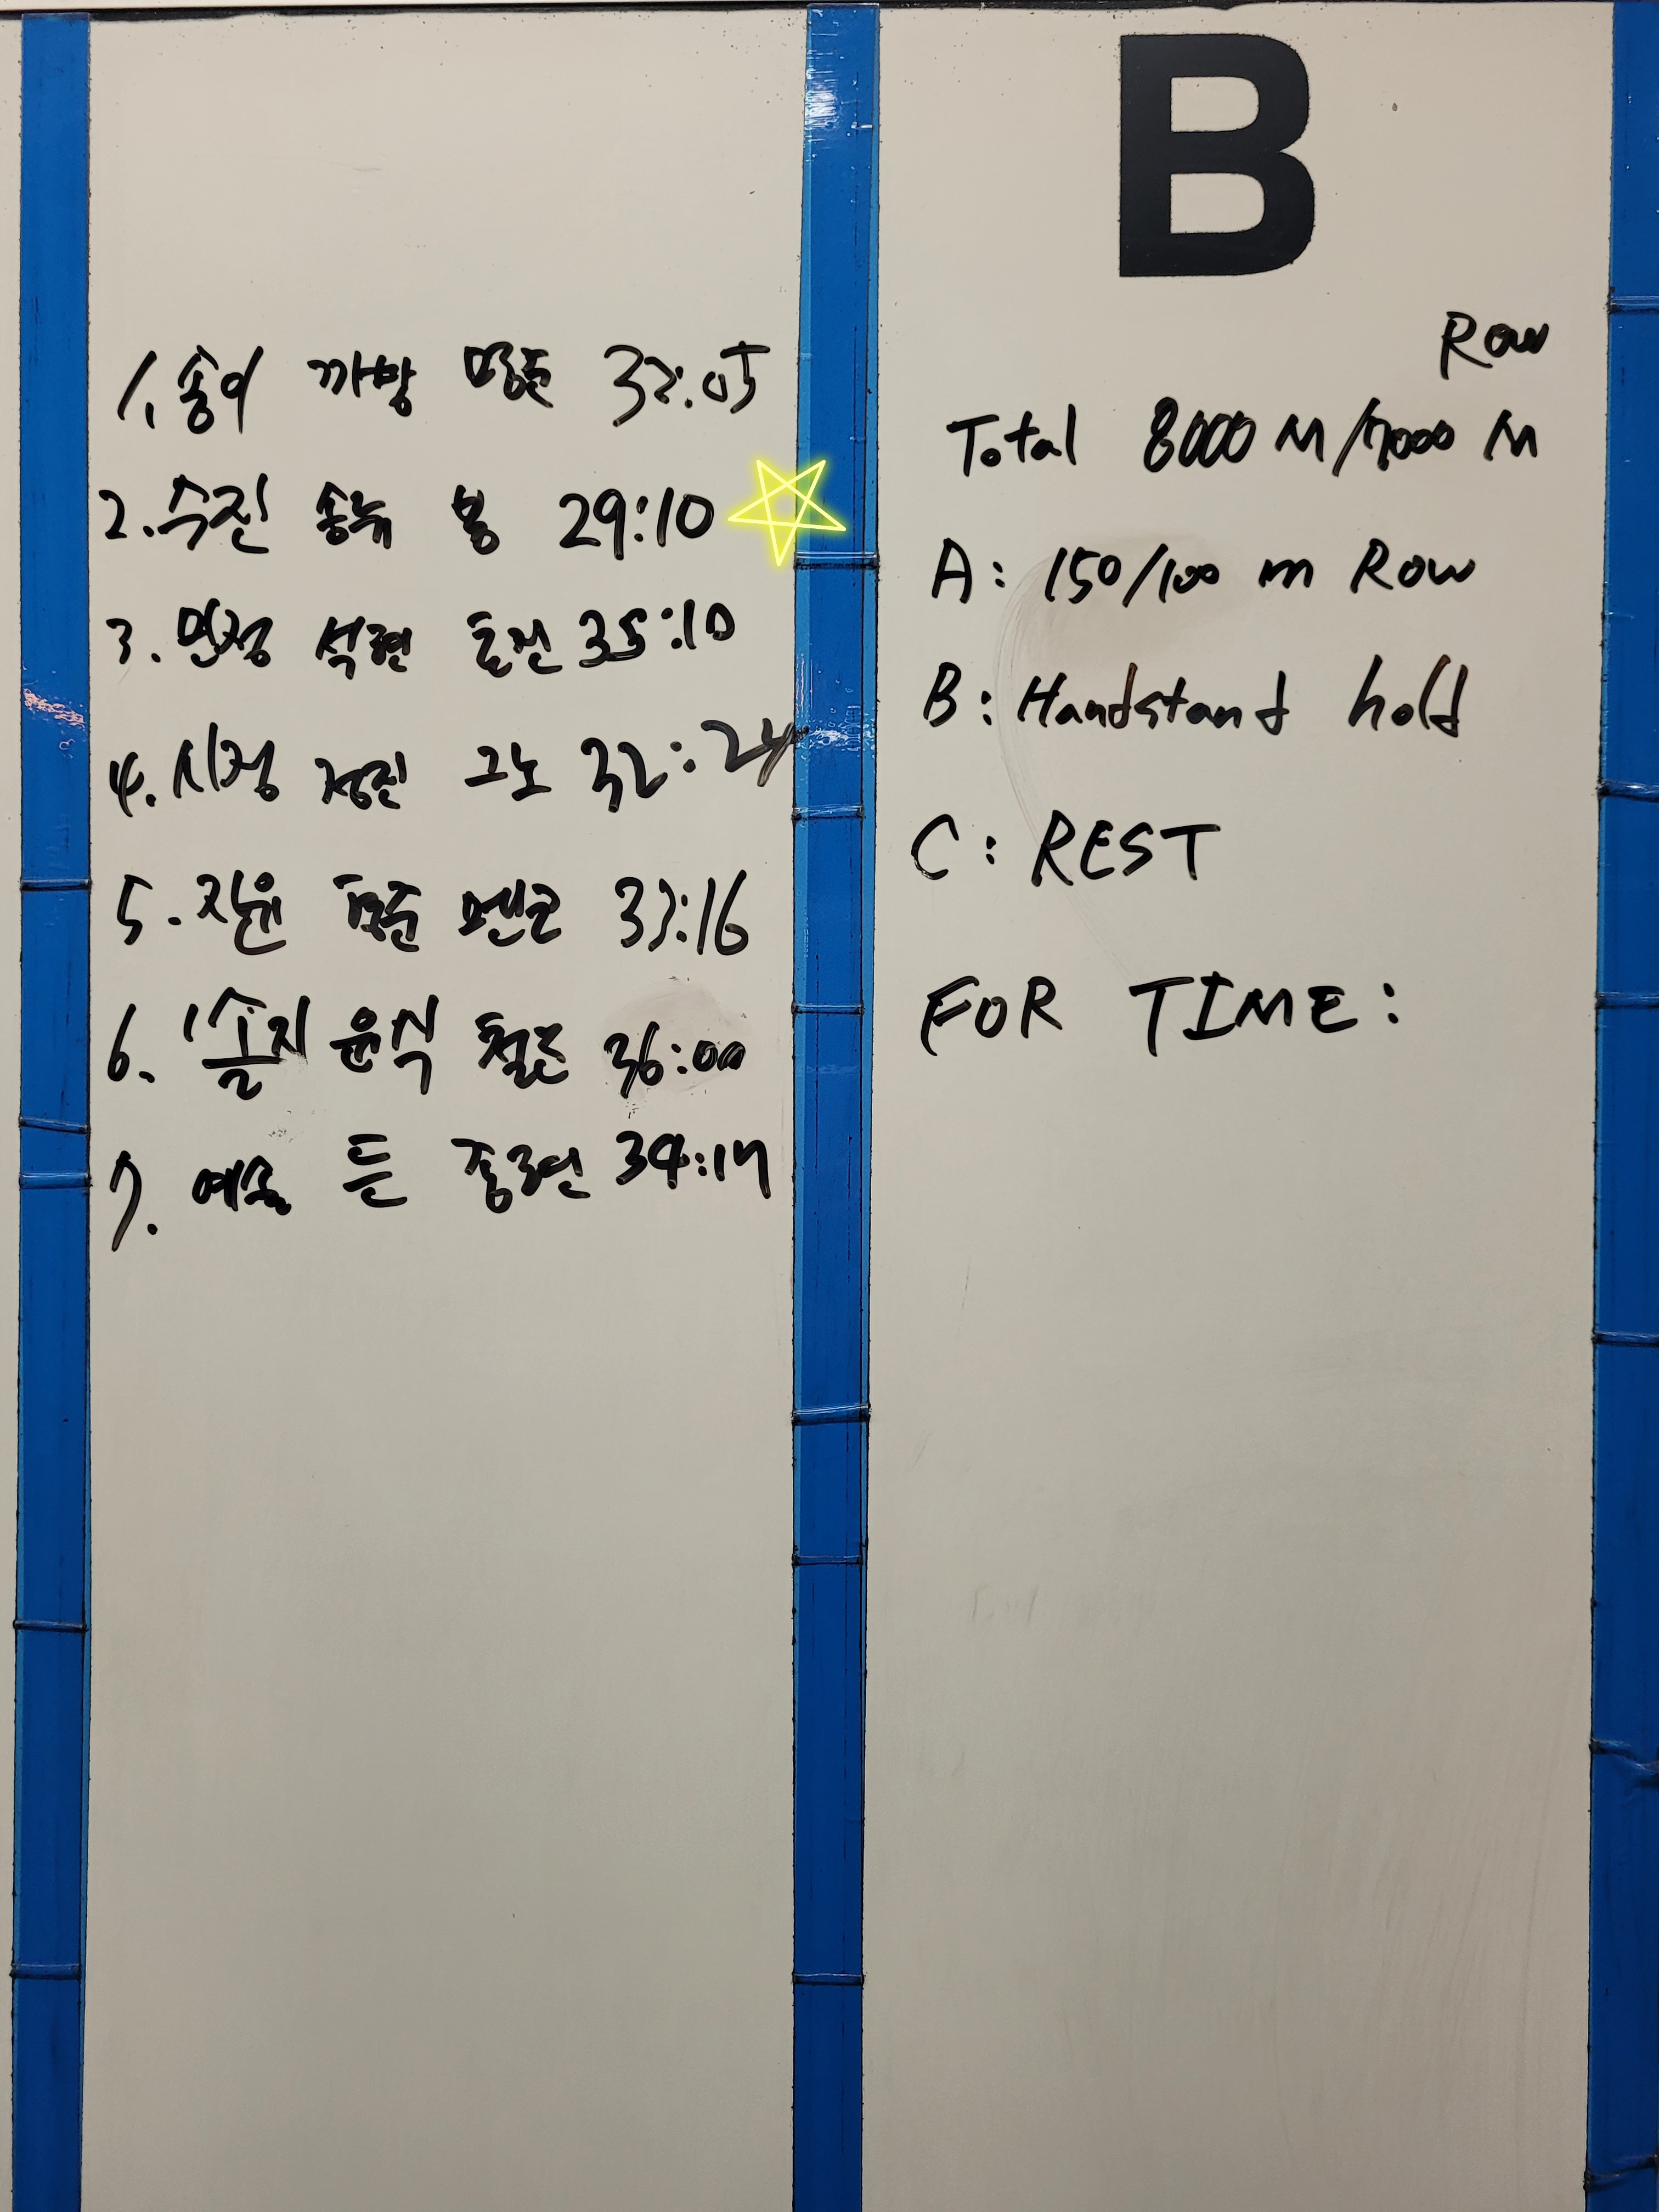 1. 송이 까방 명준
2. 수진 송뉴 봉 29:10
3. 민정 석현 돌진 35:10
4. 시정 정진 그노 32:24
5. 지윤 멘코 33:16
6. 솔지 윤식 철준 36:00
7. 예솔 튼 종현 34:17
B
Row
Total 8000 M/7000 M
A: 150/100 m Row
B: Handstand hold
C: REST
FOR TIME: